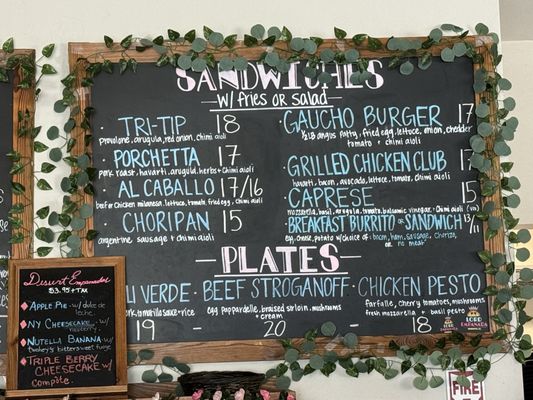 SANDWICHES
W/ FRIES OR SALAD
TRI-TIP 18
provolone, arugula, red onion, chimi aioli
PORCHETTA 17
pork roast, havarti, arugula, herbs + chimi aioli
AL CABALLO 17/16
beef or chicken milanesa, lettuce, tomato, fried egg, chimi aioli
CHORIPAN 15
argentine sausage + chimi aioli
GAUCHO BURGER 17
1/2 lb angus patty, fried egg, lettuce, onion, cheddar
tomato + chimi aioli
GRILLED CHICKEN CLUB 17
havarti, bacon, avocado, lettuce, tomato, chimi aioli
CAPRESE 15
mozzarella, basil, arugula, tomato, balsamic vinegar, chimi aioli
BREAKFAST BURRITO OR SANDWICH 13/11
egg, cheese, potato w/choice of: bacon, ham, sausage, chorizo,
or no meat
PLATES
VERDE
tomatillo sauce + rice
19
BEEF STROGANOFF
egg pappardelle, braised sirloin, mushrooms
+ cream
20
CHICKEN PESTO
farfalle, cherry tomatoes, mushrooms
fresh mozzarella + basil pesto
18
LORD
EMPANADA
DESSERT EMPANADAS
$3.95 + TAX
APPLE PIE w/ dulce
de leche
NY CHEESECAKE w/
blueberry
NUTELLA BANANA w/
TRIPLE BERRY
CHEESECAKE w/
compote
FIRE